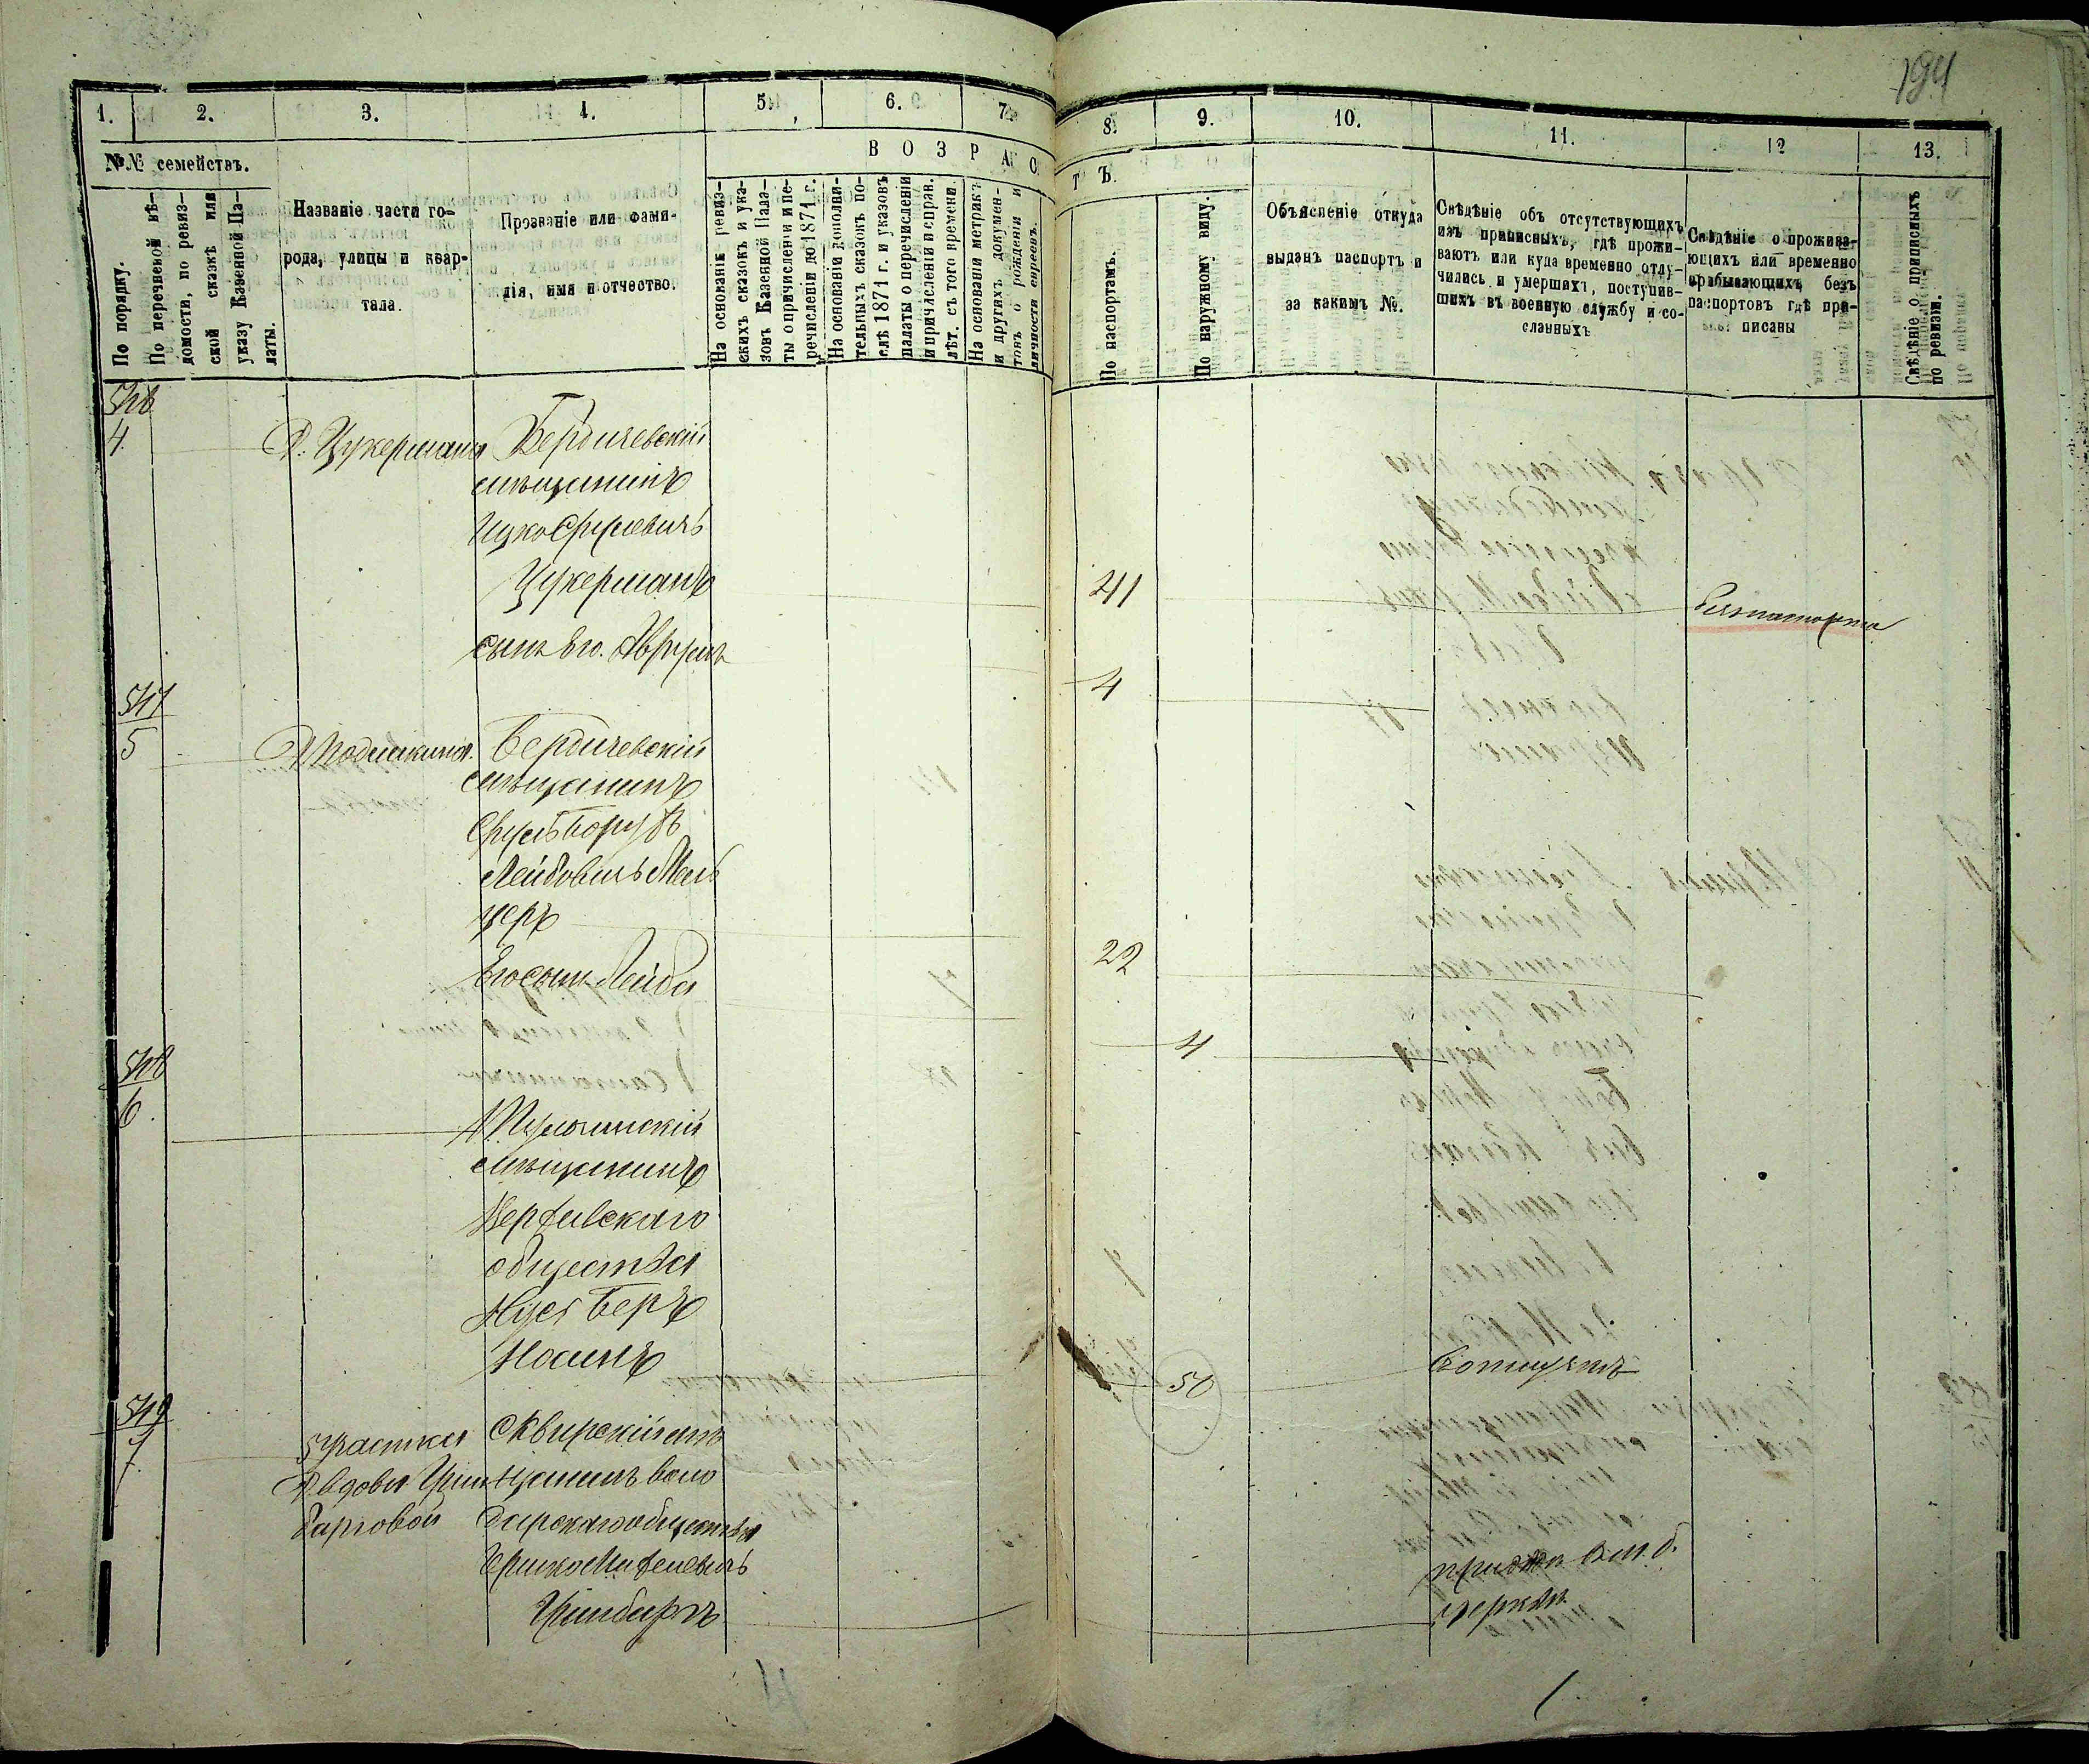 194
1. 2. 3. 4. 5. 6. 7. 8. 9. 10. 11. 12 13.
№№ семействъ.
По порядку.
По перечневой вѣ-
домости, по ревиз-
ской сказкѣ или
указу Казенной Па-
латы.
Названіе части го-
рода, улицы и квар-
тала.
Прозваніе или фами-
лія, имя и отчество.
ВОЗРАС
ТЪ.
На основаніи ревиз-
скихъ сказокъ и ука-
зовъ Казенной Пала-
ты о причисленіи и пе-
речисленіи до 1871 г.
На основаніи дополни-
тельныхъ сказокъ по-
слѣ 1871 г. и указовъ
палаты о перечисленіи
и причисленіи исправ.
лѣт. съ того времени.
На основаніи метрикъ
и другихъ докумен-
товъ о рожденіи и
личности евреевъ.
По паспортамъ.
По наружному виду.
Объясненіе откуда
выданъ паспортъ и
за какимъ №.
Свѣдѣніе объ отсутствующихъ
изъ приписныхъ, гдѣ прожи-
ваютъ или куда временно отлу-
чились и умершихъ, поступив-
шихъ въ военную службу и со-
сланныхъ
Свѣдѣніе о прожива-
ющихъ или временно
прибывающихъ безъ
паспортовъ гдѣ при-
писаны
Свѣдѣніе о приписныхъ
по ревизіи.
546
4.
Д. Цукермана
Бердичевскій
мѣщанинъ
Ицко Сруловичъ
Цукерманъ
41
безъ паспорта
сынъ его Аврумъ
4
547
5
Бердичевскій
мѣщанинъ
Сруль Борухъ
Лейбовичъ Мель
церъ
22
Его сынъ Лейба
4
548
6.
мѣщанинъ
общества
Нусл Беръ
50
549
7.
участка
Д. вдовы
Сквирскій мѣ
щанинъ Воло
дарскаго общества